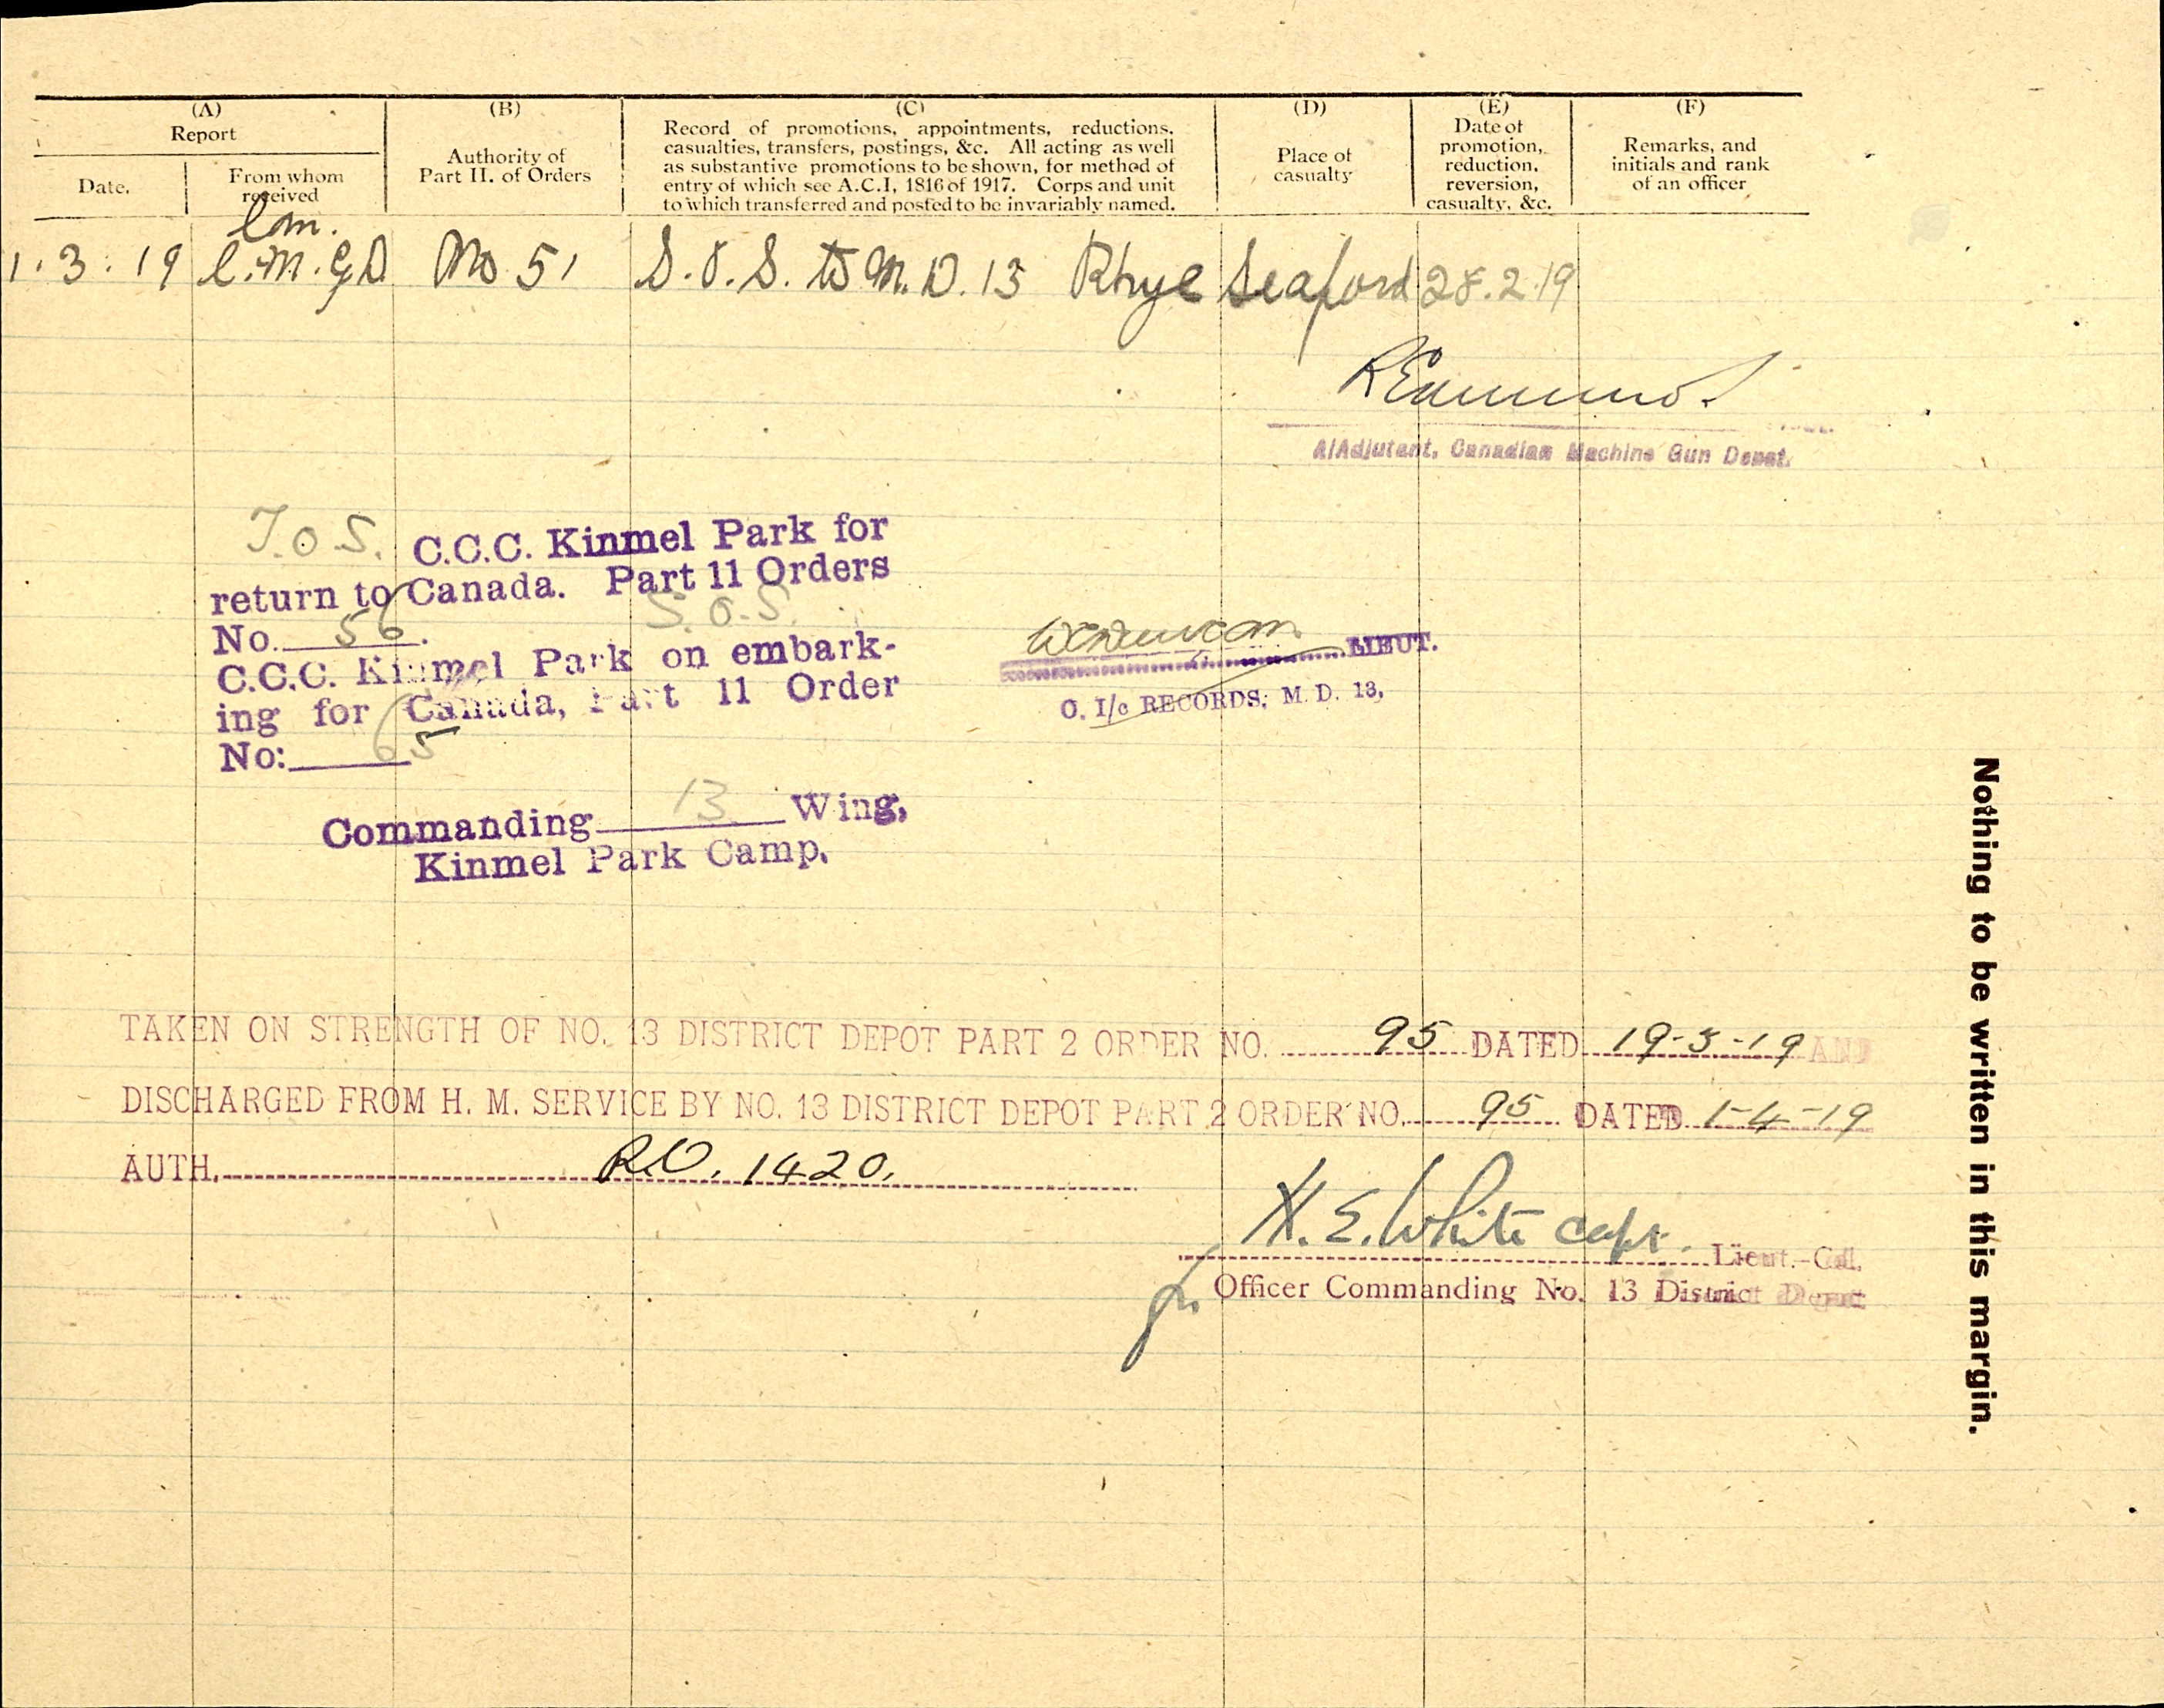 (A)
Report
Date.
From whom
received
(B)
Authority of
Part II. of Orders
(C)
Record of promotions, appointments, reductions,
casualties, transfers, postings, &c. All acting as well
as substantive promotions to be shown, for method of
entry of which see A.C.I, 1816 of 1917. Corps and unit
to which transferred and posted to be invariably named.
(D)
Place of
casualty
(E)
Date of
promotion,
reduction,
reversion,
casualty, &c.
(F)
Remarks, and
initials and rank
of an officer
1.3.19 C.M.G.D. No 51 S.O.S. to M.D. 13 Rhyl Seaford 28.2.19
A/Adjutant, Canadian Machine Gun Depot.
T.O.S. C.C.C. Kinmel Park for
return to Canada. Part 11 Orders
No. 56. S.O.S.
C.C.C. Kinmel Park on embark-
ing for Canada, Part 11 Order
No: 65
LIEUT.
O. I/c RECORDS; M. D. 13,
Commanding 13 Wing,
Kinmel Park Camp.
TAKEN ON STRENGTH OF NO. 13 DISTRICT DEPOT PART 2 ORDER NO. 95 DATED 19-3-19 AND
DISCHARGED FROM H. M. SERVICE BY NO. 13 DISTRICT DEPOT PART 2 ORDER NO. 95 DATED 1-4-19
AUTH. R.O. 1420.
H. E. White Capt. Lieut.-Col.
for Officer Commanding No. 13 District Depot
Nothing to be written in this margin.